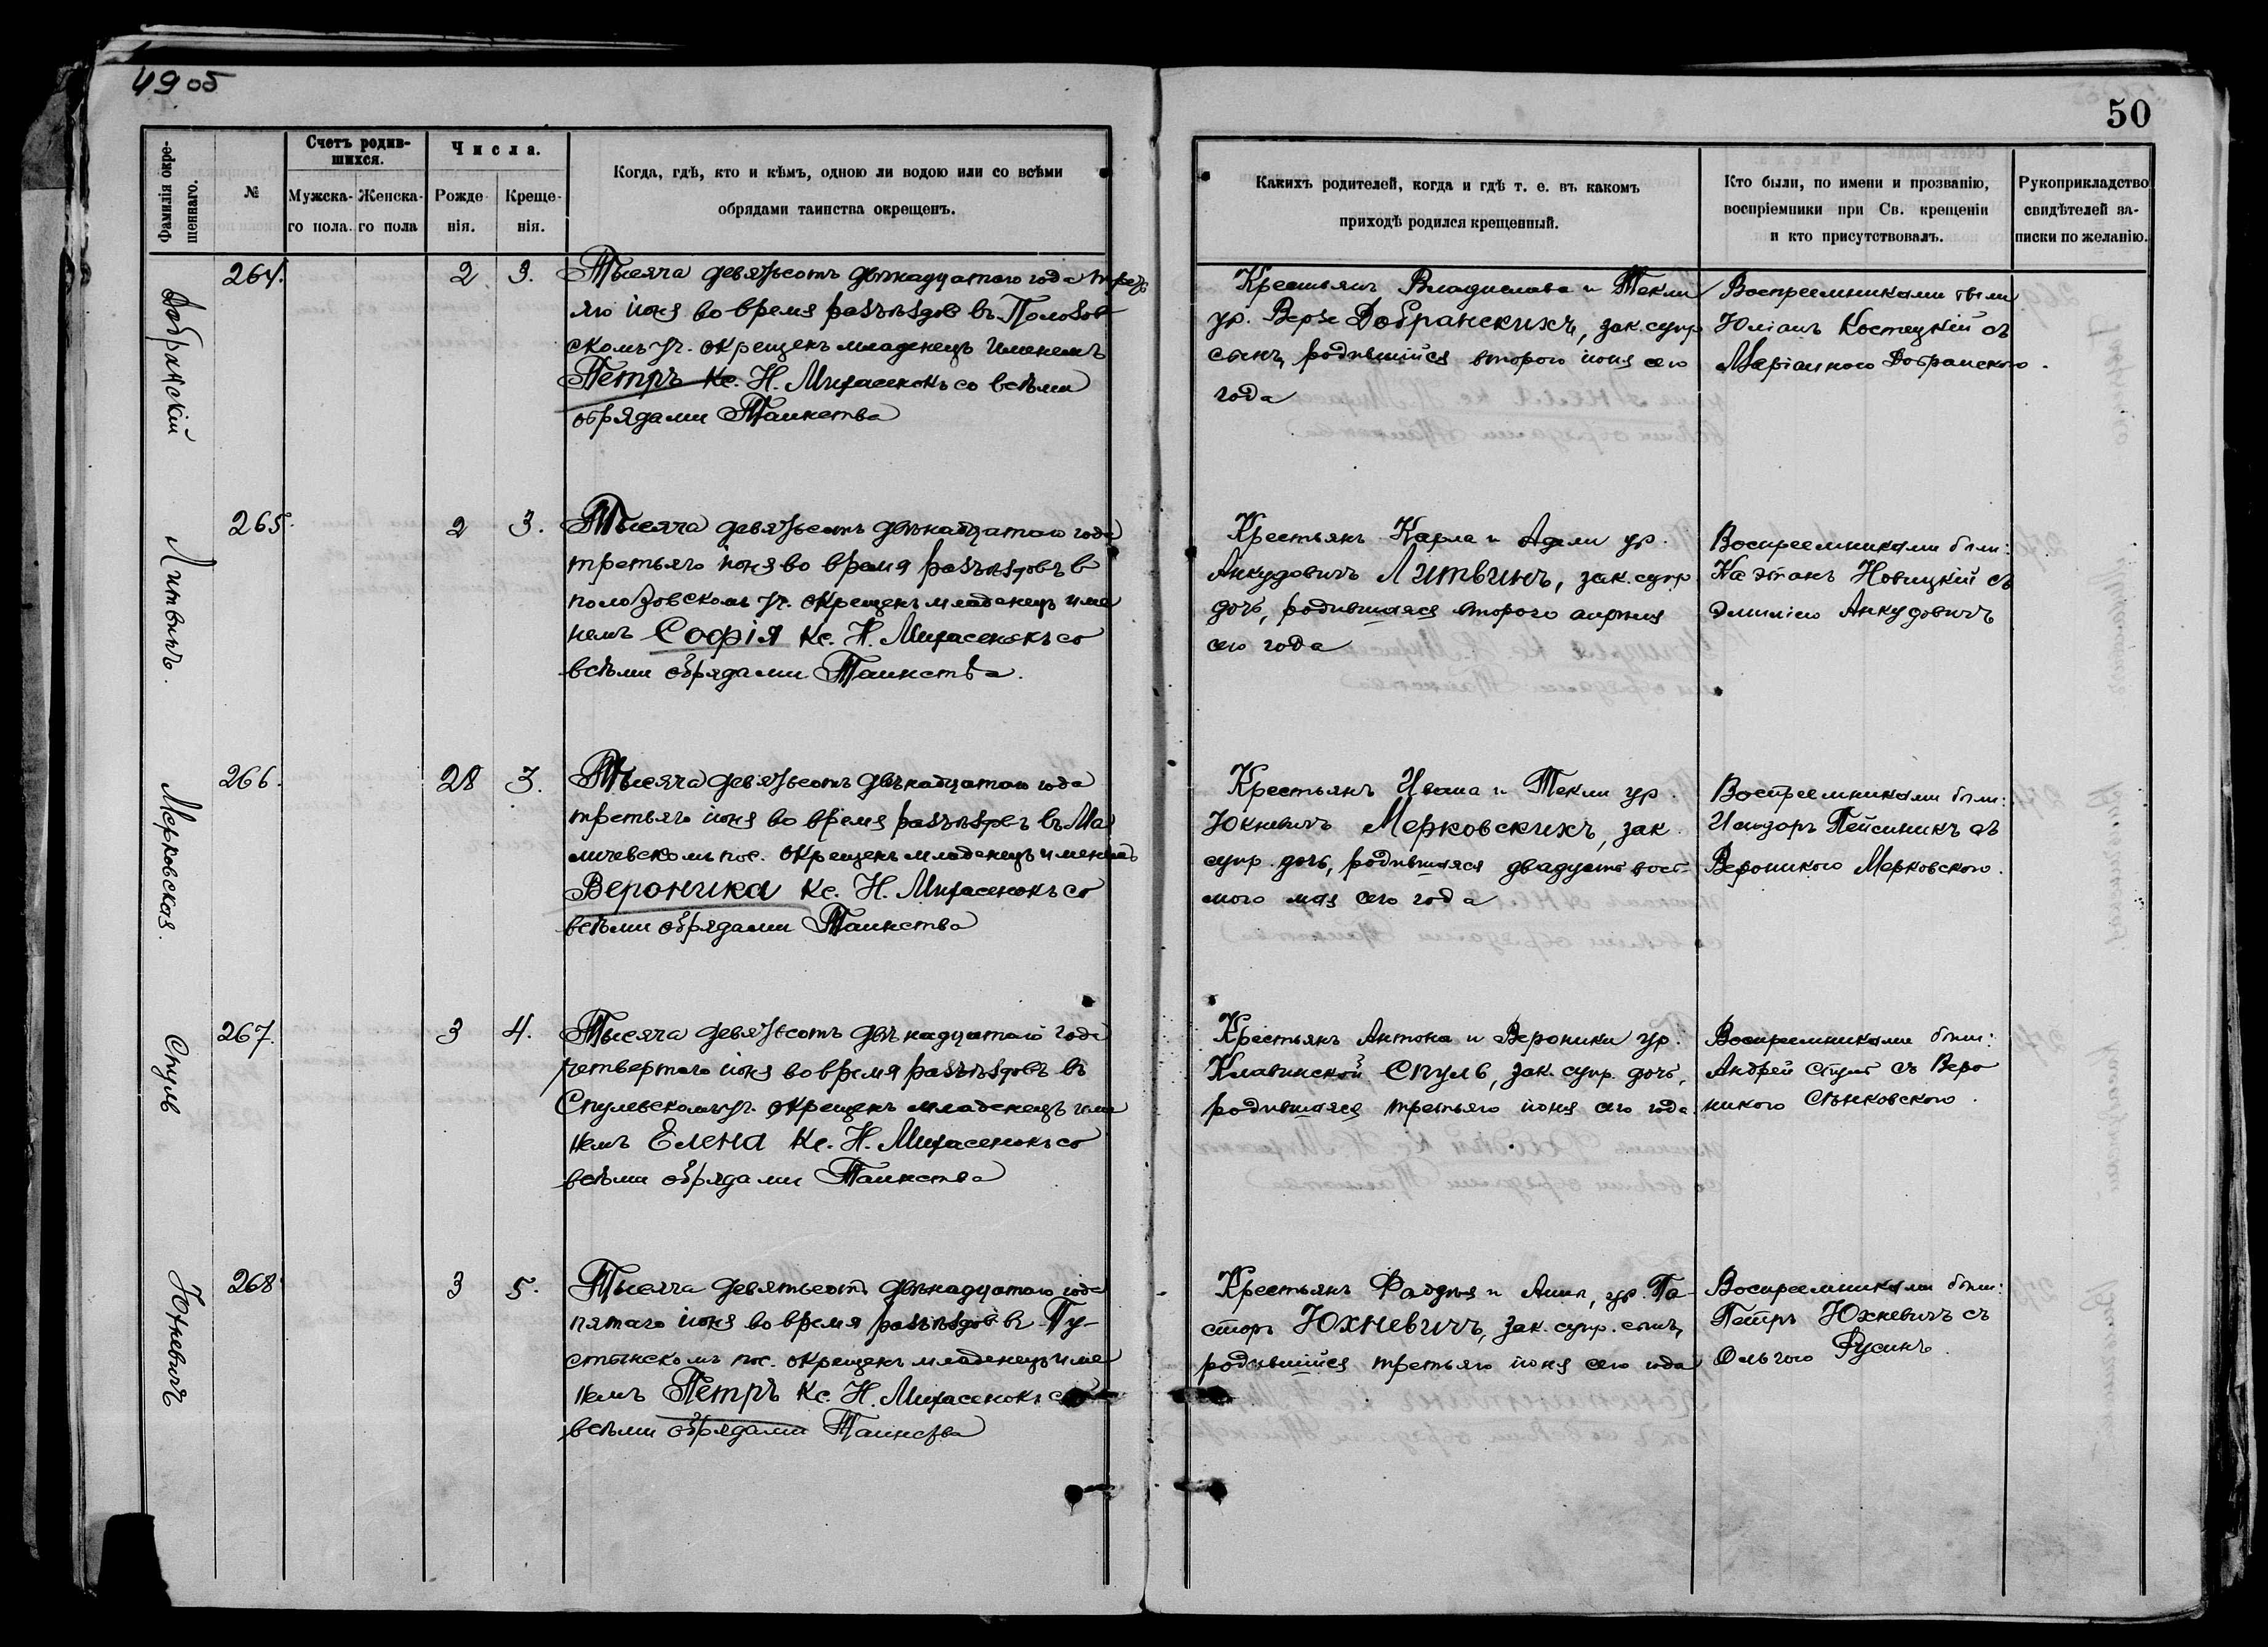 49 об
50
Фамилія окре-
щеннаго.
№
Счетъ родив-
шихся.
Мужска-
го пола.
Женска-
го пола
Числа.
Рожде-
нія.
Креще-
нія.
Когда, гдѣ, кто и кѣмъ, одною ли водою или со всѣми
обрядами таинства окрещенъ.
Какихъ родителей, когда и гдѣ т. е. въ какомъ
приходѣ родился крещенный.
Кто были, по имени и прозванію,
воспріемники при Св. крещеніи
и кто присутствовалъ.
Рукоприкладство
свидѣтелей за-
писки по желанію.
Добранскій
264.
2
3.
Тысяча девятьсотъ двѣнадцатаго года треть
яго іюня во время разъѣздов въ Полозов
скомъ уч. окрещенъ младенецъ именемъ
Петръ Кс. Н. Михасенокъ со всѣми
обрядами Таинства
Крестьянъ Владислава и Текли
ур. Добранскихъ, зак. супр
сынъ, родившійся второго іюня сего
года
Воспреемниками были
Юліанъ Костецкій съ
Маріанною Добранскою.
Литвинъ.
265.
2
3.
Тысяча девятьсотъ двѣнадцатаго года
третьяго іюня во время разъѣздовъ в
полозовскомъ уч. окрещенъ младенецъ име
немъ Софія Кс. Н. Михасенокъ со
всѣми обрядами Таинства.
Крестьянъ Карла и Адели ур.
Анкудовичъ Литвинъ, зак. супр
дочь, родившаяся второго апрѣля
сего года
Воспреемниками были:
Каэтанъ Новицкій съ
Эмиліею Анкудовичъ
Мерковская.
266.
28
3.
Тысяча девятьсотъ двѣнадцатаго года
третьяго іюня во время разъѣздовъ въ Ма
личевскомъ пос. окрещенъ младенецъ именемъ
Вероника Кс. Н. Михасенокъ со
всѣми обрядами Таинства
Крестьянъ Ивана и Текли ур.
Юхневичъ Мерковскихъ, зак.
супр. дочь, родившаяся двадцать вось-
мого мая сего года
Воспреемниками были:
Исидоръ съ
Вероникою Мерковскою.
Спуль
267.
3
4.
Тысяча девятьсотъ двѣнадцатаго года
четвертаго іюня во время разъѣздовъ въ
Спулевскомъ уч. окрещенъ младенецъ име
немъ Елена Кс. Н. Михасенокъ со
всѣми обрядами Таинства
Крестьянъ Антона и Вероники ур.
Клавинской Спуль, зак. супр. дочь,
родившаяся третьяго іюня сего года.
Воспреемниками были:
Андрей Спуль съ Веро
никою Сѣнковскою.
Юхневичъ
268
3
5.
Тысяча девятьсотъ двѣнадцатаго года
пятаго іюня во время разъѣздов въ Пу-
стынскомъ пос. окрещенъ младенецъ име
немъ Петръ Кс. Н. Михасенокъ со
всѣми обрядами Таинства
Крестьянъ Фаддѣя и Анны, ур. Па-
сторъ Юхневичъ, зак. супр. сынъ,
родившійся третьяго іюня сего года
Воспреемниками были:
Петръ Юхневичъ съ
Ольгою Русинъ.